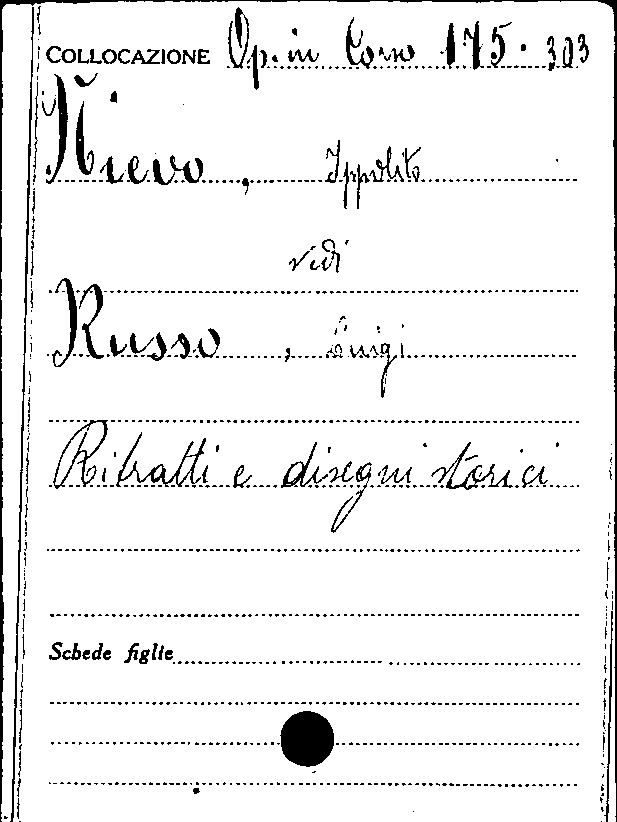 COLLOCAZIONE Op. in Corso 175. 303
Nievo, Ippolito
vedi
Russo, Luigi
Ritratti e disegni storici
Schede figlie